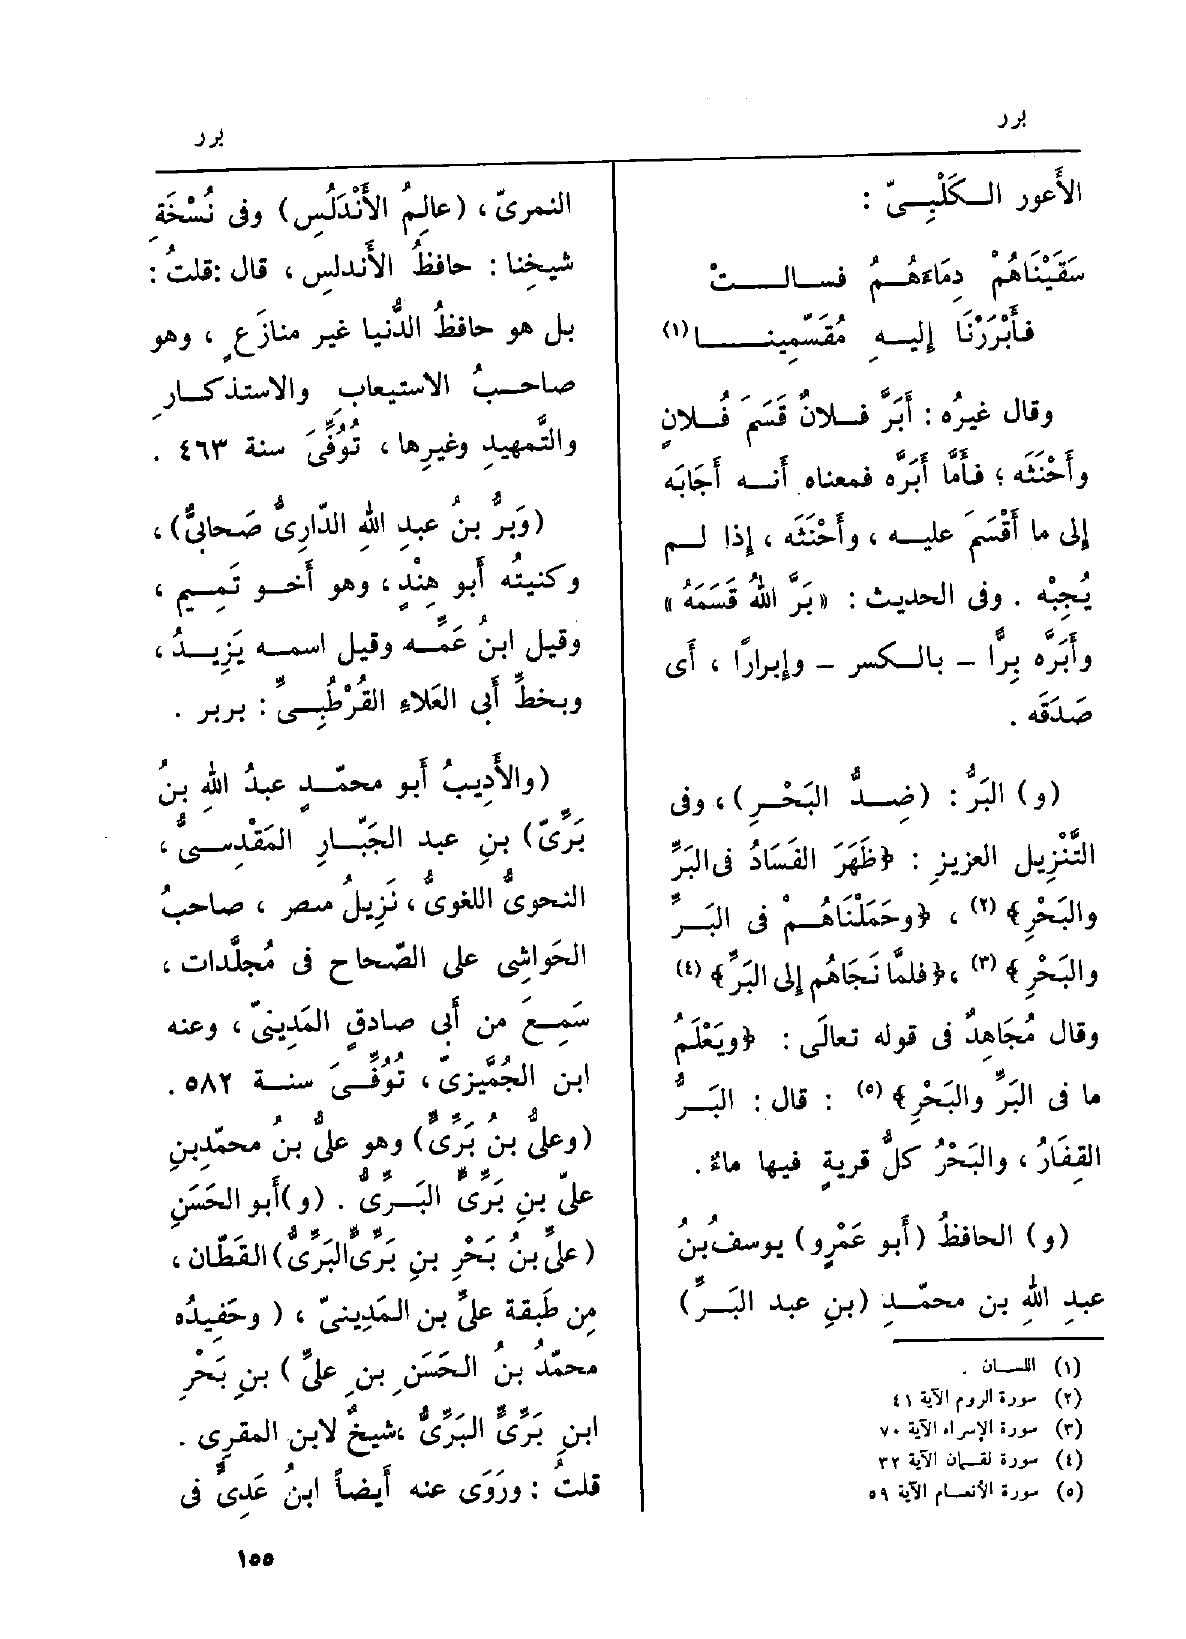 برر
برر
الأعور الـكَلْبِـىّ :
سَقَيْنَاهُمْ دِمَاءَهُـمُ فسـالـتْ
فأَبْرَرْنَا إليـهِ مُقسِّمِينـا(١)
وقال غيرُه : أَبَرَّ فـلانٌ قَسَمَ فُـلانٍ
وأَحْنَثَه ؛ فأَمَّا أَبَرَّه فمعناه أنـه أجَابَه
إلى ما أَقْسَمَ عليـه ، وأَحْنَثَه ، إذا لـم
يُجِبْه . وفى الحديث : «بَرَّ اللهُ قَسَمَهُ»
وأَبَرَّه بِرًّا – بالـكسر – وإبرارًا ، أى
صَدَقَه .
(و) البَرُّ : (ضِـدُّ البَحْـرِ)، وفى
التَّنْزِيل العزيزِ : ﴿ظَهَرَ الفَسَادُ فى البَرِّ
والبَحْرِ﴾ (٢) ، ﴿وحَمَلْنَاهُـمْ فى البَـرِّ
والبَحْرِ﴾ (٣) ،﴿فلمَّا نَجَاهُم إلى البَرِّ﴾ (٤)
وقال مُجَاهِدٌ فى قوله تعالَى : ﴿ويَعْلَمُ
ما فى البَرِّ والبَحْرِ﴾ (٥) : قال : البَـرُّ
القِفَارُ ، والبَحْرُ كلُّ قريةٍ فيها ماءٌ .
(و) الحافظُ (أبو عَمْرٍو) يوسفُ بنُ
عبدِ اللهِ بن محمّـدِ (بنِ عبد البَـرِّ)
(١) اللسان .
(٢) سورة الروم الآية ٤١
(٣) سورة الإسراء الآية ٧٠
(٤) سورة لقمان الآية ٣٢
(٥) سورة الأنعـام الآية ٥٩
النمرىّ ، (عالِمُ الأَنْدَلُسِ) وفى نُسْخَةِ
شيخِنا : حافظُ الأَندلسِ ، قال :قلتُ :
بل هو حافظُ الدُّنيا غير منازَعٍ ، وهو
صاحـبُ الاستيعابِ والاستذكـارِ
والتَّمهيدِ وغيرِها ، تُوُفِّىَ سنة ٤٦٣ .
(وَبَرُّ بنُ عبدِ اللهِ الدّارِىُّ صَحابىٌّ) ،
وكنيتُه أبو هِنْدٍ ، وهو أخـو تَمِيـم ،
وقيل ابنُ عَمِّـه وقيل اسمـه يَزِيـدُ ،
وبخطِّ أبى العَلاءِ القُرْطُبِـىِّ : بربر .
(والأَدِيبُ أبو محمّـدٍ عبدُ اللهِ بنُ
بَرِّىّ) بنِ عبد الجَبّـارِ المَقْدِسـىُّ ،
النحوىُّ اللغوىُّ ، نَزِيلُ مصر ، صاحبُ
الحَواشِى على الصّحاح فى مُجلَّدات ،
سَمِـعَ من أبى صادقٍ المَدِينىّ ، وعنه
ابن الجُمَّيزىّ ، تُوُفِّـىَ سنـة ٥٨٢ .
(وعلىُّ بنُ بَرِّىٍّ) وهو علىُّ بنُ محمّدِبنِ
علىِّ بنِ بَرِّىٍّ البَـرِّىُّ . (و)أبو الحَسَنِ
(علىُّ بنُ بَحْرِ بنِ بَرِّىٍّ البَرِّىُّ) القَطّان ،
مِن طَبقة علىِّ بن المَدِينىّ ، ( وحَفِيدُه
محمّدُ بنُ الحَسَنِ بنِ علىٍّ ) بنِ بَحْرِ
ابنِ بَرِّىٍّ البَرِّىُّ ،شيخٌ لابن المقرِى .
قلتُ : ورَوَى عنه أيضاً ابنُ عَدِىٍّ فى
١٥٥